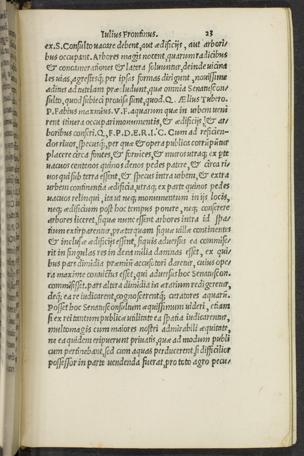 Iulius Frontinus. 23
ex.S.Consulto vacare debent, aut ædificijs, aut arbori
bus occupant. Arbores magis nocent, quarum radicibus
& concamerationes & latera soluuntur, deinde vicina
les vias, agrestesq; per ipsas formas dirigunt, nouissime
aditus ad tutelam præcludunt, quæ omnia Senatuscon
sulto, quod subieci prouisa sunt, quod. Q. Ælius Tubero.
P. Fabius maximus. V. F. aquarum quæ in vrbem veni
rent itinera occupari monumentis, & ædificijs, & ar
boribus conseri. Q. F. P. D. E. R. I. C. Cum ad reficien
dos riuos, specusq; per quæ & opera publica corrūpūtur
placere circa fontes, & fornices, & muros vtraq; ex pte
vacuos centenos quinos denos pedes patere, & circa ri
uos qui sub terra essent, & specus intra vrbem, & extra
vrbem continentia ædificia, vtraq; ex parte quinos pedes
vacuos relinqui, ita ut neq; monumentum in ijs locis,
neq; ædificium post hoc tempus ponere, neq; conserere
arbores liceret, siquæ nunc essent arbores intra id spa
tium extirparentur, præterquam siquæ villæ continentes
& inclusæ ædificijs essent, siquis aduersus ea commise
rit in singulas res in dena milia damnas esset, ex qui
bus pars dimidia præmiū accusatori daretur, cuius ope
ra maxime conuictus esset, qui aduersus hoc Senatuscon.
commisisset. pars altera dimidia in ærarium redigeretur,
deq; ea re iudicarent, cognoscerentq; curatores aquarū.
Posset hoc Senatusconsultum æquissimum videri, etiam
si ex rei tantum publicæ vtilitate ea spatia iudicarentur,
multo magis cum maiores nostri admirabili æquitate,
ne ea quidem eripuerunt priuatis, quæ ad modum publi
cum pertinebant, sed cum aquas perducerent si difficilior
possessor in parte vendenda fuerat, pro toto agro pecu-